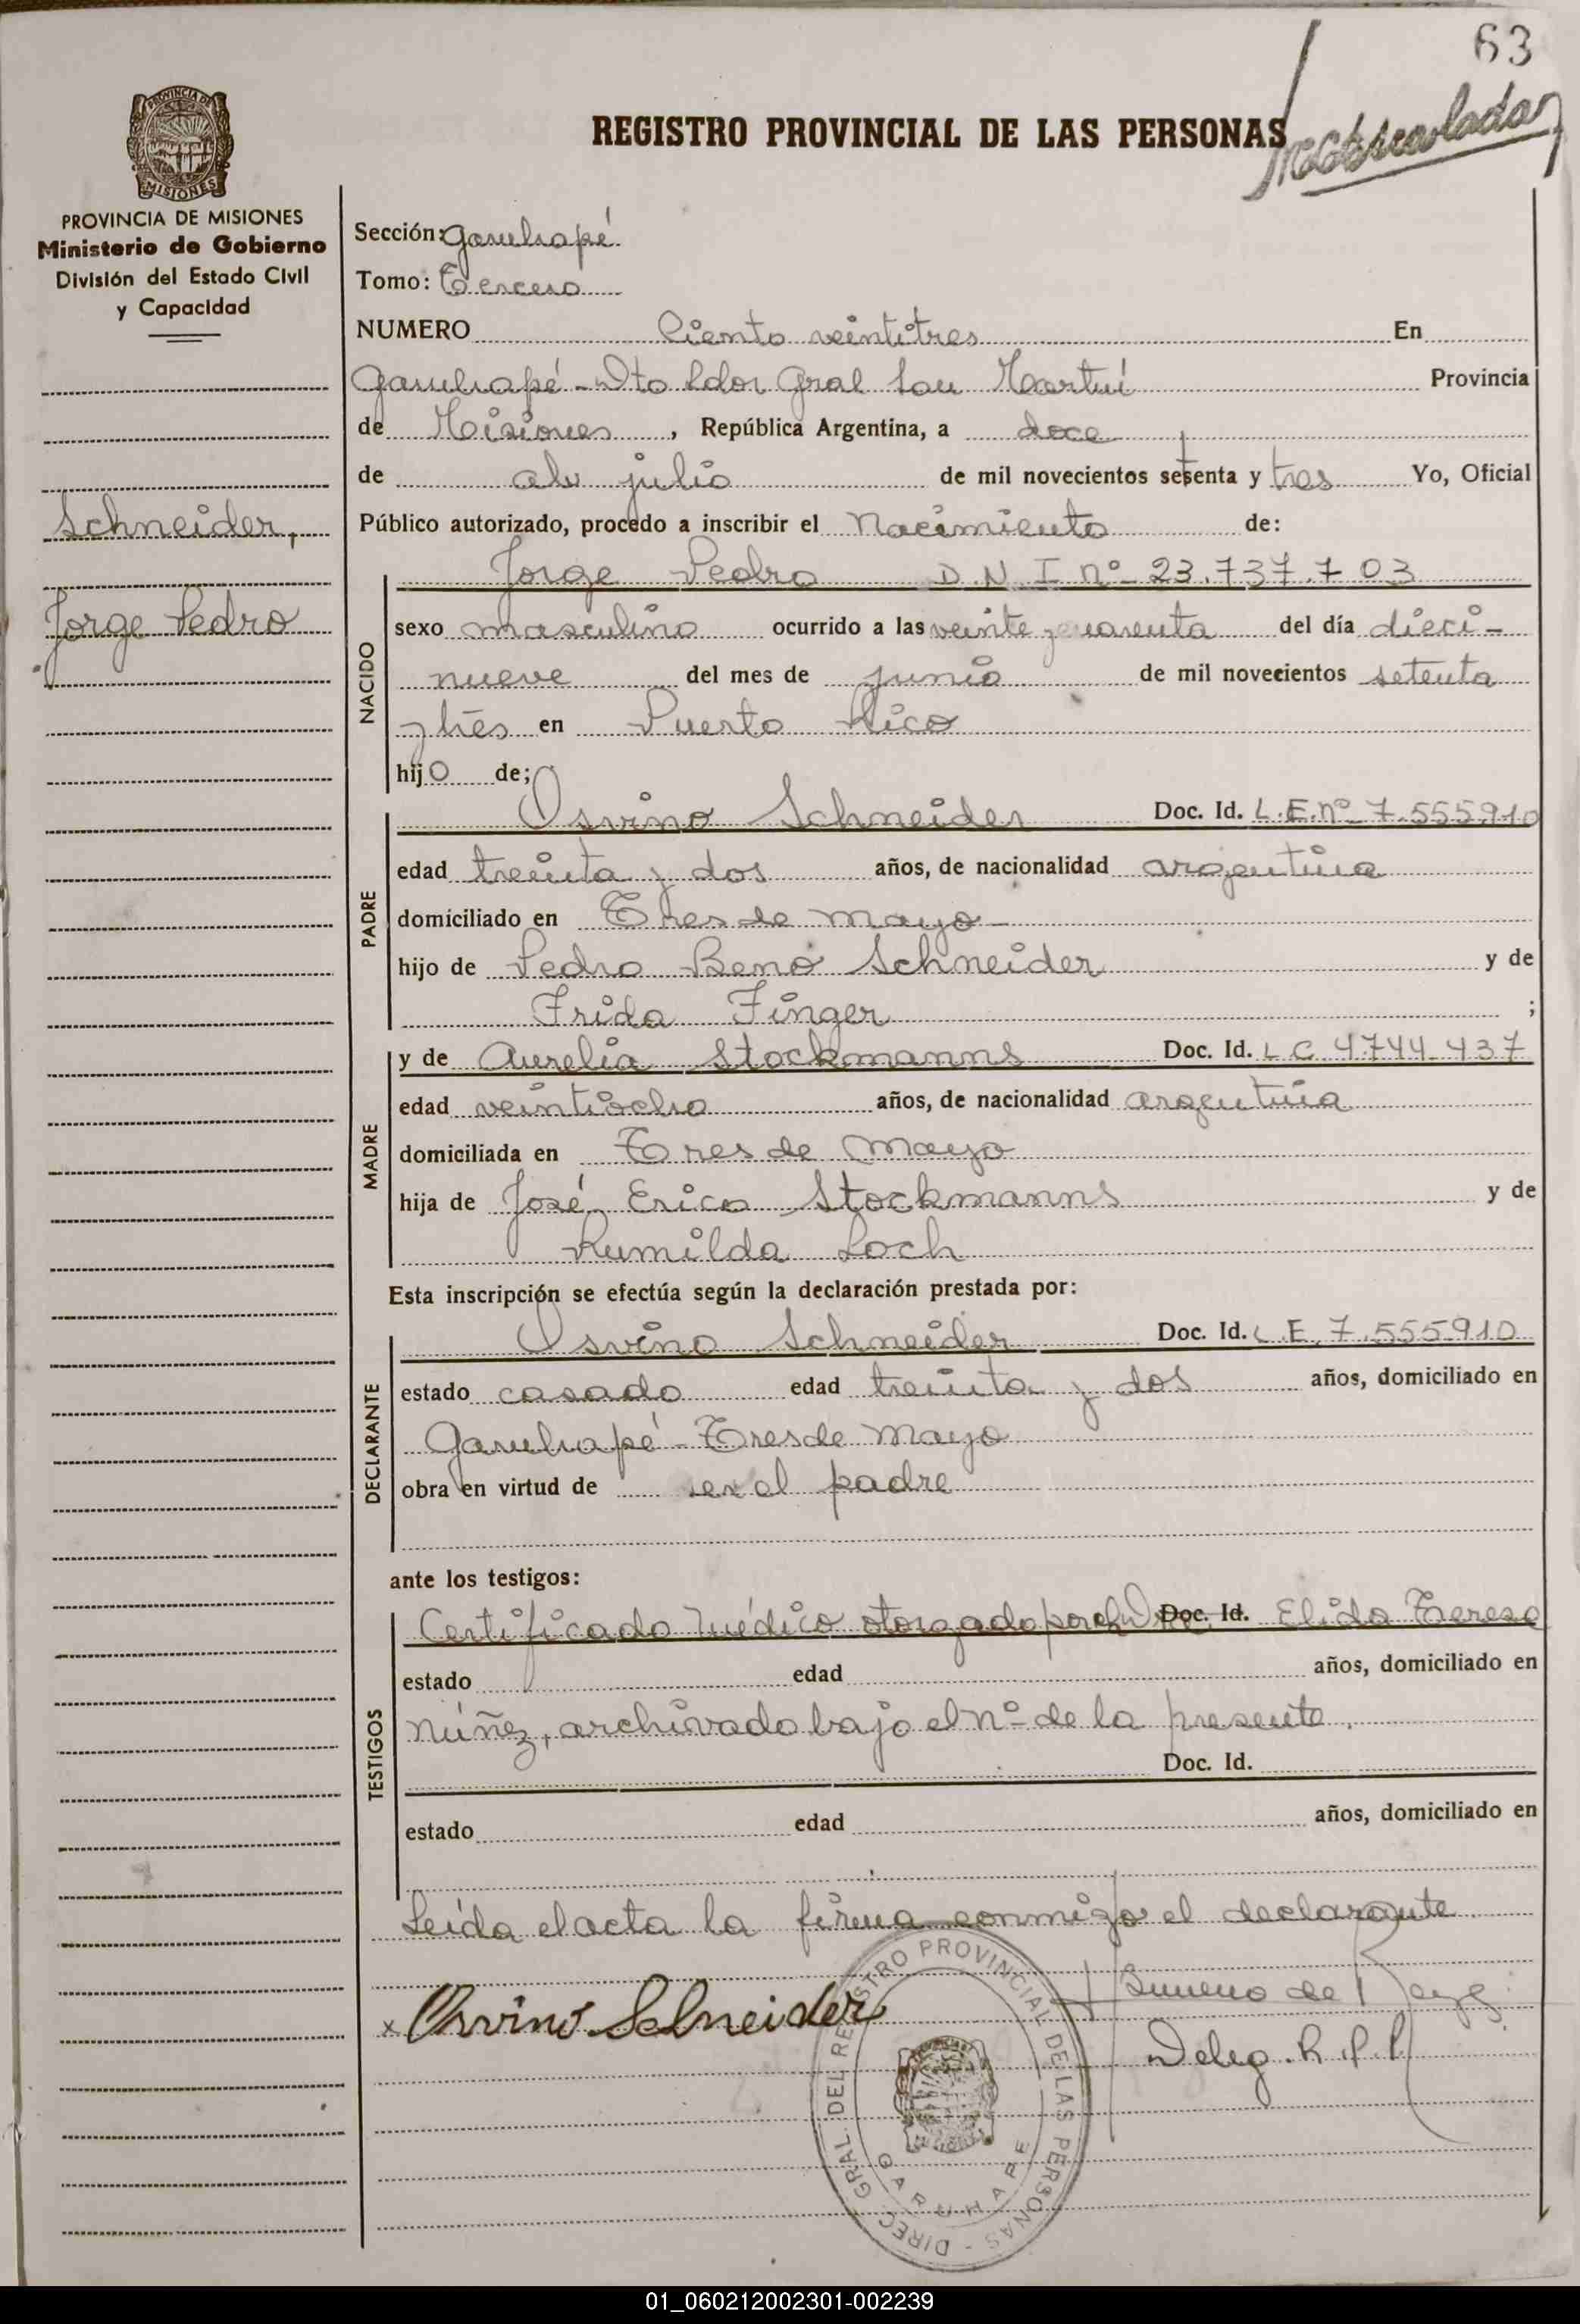 63
Matriculado
REGISTRO PROVINCIAL DE LAS PERSONAS
PROVINCIA DE MISIONES
PROVINCIA DE MISIONES
Ministerio de Gobierno
División del Estado Civil
y Capacidad
Schneider,
Jorge Pedro
Sección: Garuhapé
Tomo: Tercero
NUMERO Ciento veintitres En
Garuhapé - Dto Ldor Gral San Martín Provincia
de Misiones, República Argentina, a doce
de de julio de mil novecientos setenta y tres Yo, Oficial
Público autorizado, procedo a inscribir el Nacimiento de:
NACIDO
Jorge Pedro D.N.I nº 23.737.703
sexo masculino ocurrido a las veinte y cuarenta del día dieci-
nueve del mes de junio de mil novecientos setenta
y tres en Puerto Rico
hijo de;
PADRE
Osvino Schneider Doc. Id. L.E.nº 7.555910
edad treinta y dos años, de nacionalidad argentina
domiciliado en Tres de mayo-
hijo de Pedro Beno Schneider y de
Frida Finger ;
MADRE
y de Aurelia Stockmanns Doc. Id. L C 4744-437
edad veintiocho años, de nacionalidad argentina
domiciliada en Tres de Mayo
hija de José Erico Stockmanns y de
Rumilda Loch
Esta inscripción se efectúa según la declaración prestada por:
DECLARANTE
Osvino Schneider Doc. Id. L.E. 7.555910
estado casado edad treinta y dos años, domiciliado en
Garuhapé - Tres de Mayo
obra en virtud de ser el padre
ante los testigos:
TESTIGOS
Certificado médico otorgado por Doc. Id. Elida Teresa
estado edad años, domiciliado en
Núñez, archivado bajo el nº de la presente.
Doc. Id.
estado edad años, domiciliado en
Leída el acta la firma conmigo el declarante
x Osvino Schneider
de Reyes
Deleg. R.P.P.
DIREC. GRAL. DEL REGISTRO PROVINCIAL DE LAS PERSONAS -
GARUHAPE
01_060212002301-002239